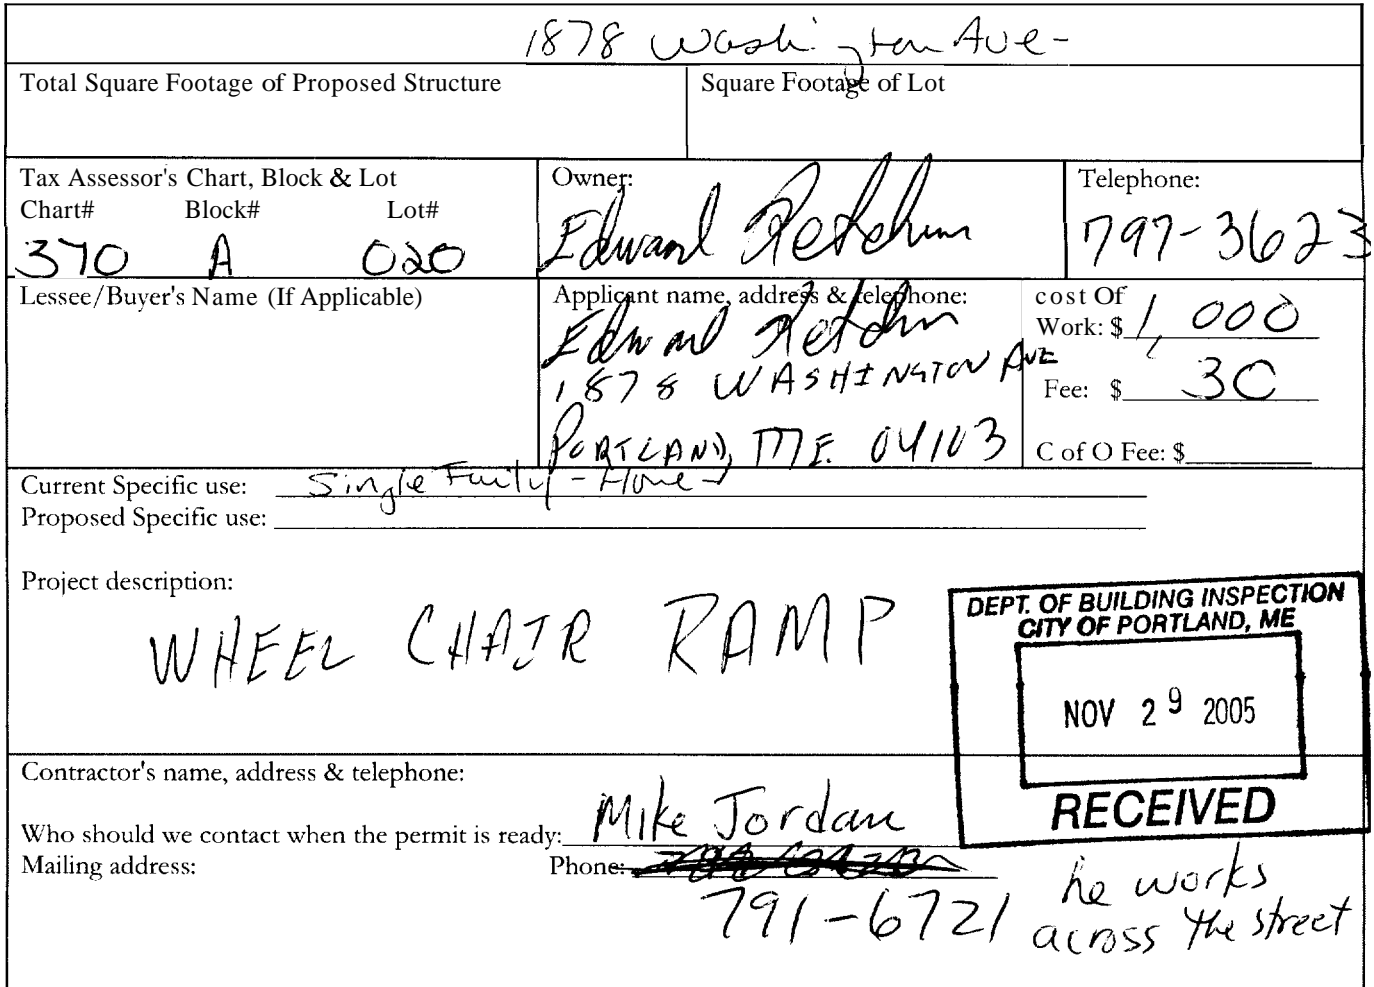 1878 Washington Ave-
Total Square Footage of Proposed Structure Square Footage of Lot
Tax Assessor's Chart, Block & Lot Owner: Telephone:
Chart# Block# Lot#
370 A 020 Edward Ketchum 797-3623
Lessee/Buyer's Name (If Applicable) Applicant name, address & telephone: cost Of
Edward Ketchum Work: $ 1,000
1878 WASHINGTON AVE Fee: $ 30
PORTLAND, ME. 04103 C of O Fee: $
Current Specific use: Single Family - Home
Proposed Specific use:
Project description:
WHEEL CHAIR RAMP
DEPT. OF BUILDING INSPECTION
CITY OF PORTLAND, ME
NOV 29 2005
RECEIVED
Contractor's name, address & telephone:
Who should we contact when the permit is ready: Mike Jordan
Mailing address: Phone:
791-6721
he works
across the street